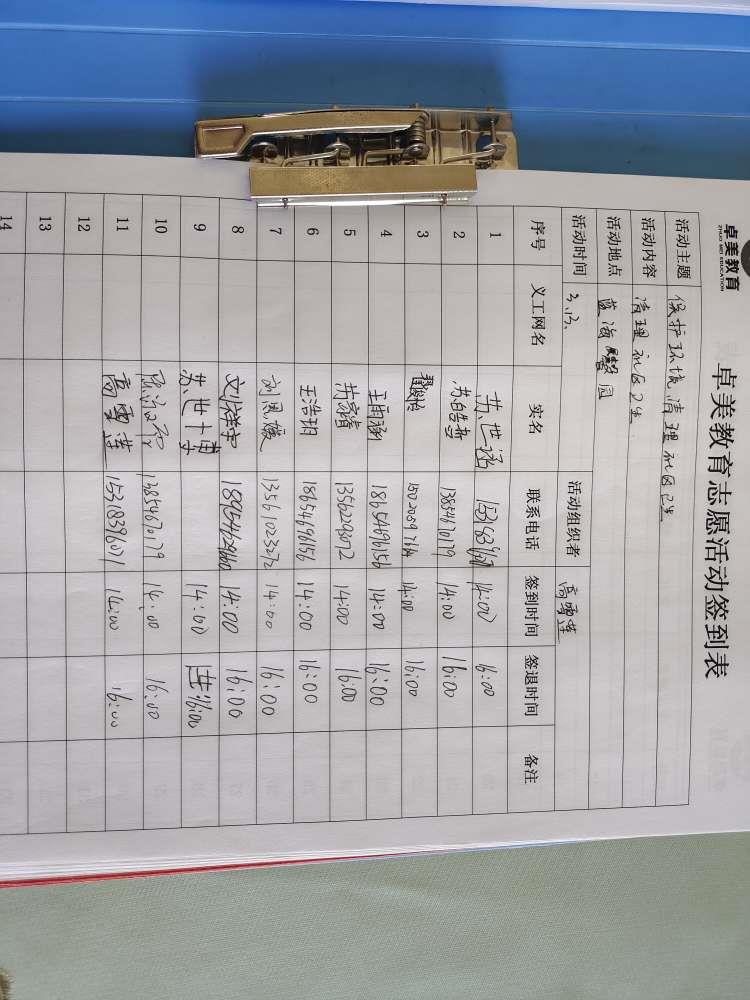 卓美教育
ZHUO MEI EDUCATION
卓美教育志愿活动签到表
活动主题 保护环境,清理社区卫生
活动内容 清理社区卫生.
活动地点 蓝海 园 活动组织者 高雪莲
活动时间 3.13.
序号 义工网名 实名 联系电话 签到时间 签退时间 备注
1 苏世涵 14:00 16:00
2 苏皓 13854670179 14:00 16:00
3 14:00 16:00
4 王雨涵 18654696156 14:00 16:00
5 14:00 16:00
6 王浩玥 18654696156 14:00 16:00
7 刘恩媛 13561023272 14:00 16:00
8 14:00 16:00
9 苏世博 14:00 16:00
10 13854670179 14:00 16:00
11 高雪莲 14:00 16:00
12
13
14